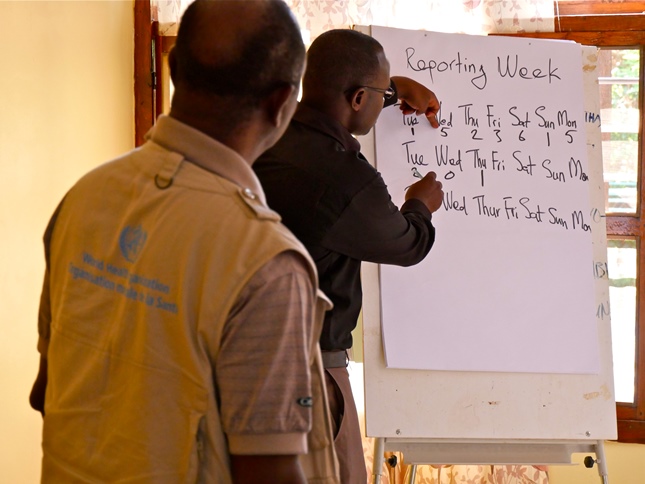 Reporting Week
Tue Wed Thu Fri Sat Sun Mon
1 5 2 3 6 1 5
Tue Wed Thu Fri Sat Sun Mon
0 1
Wed Thur Fri Sat Sun Mon
World Health Organization
Organisation mondiale de la Santé